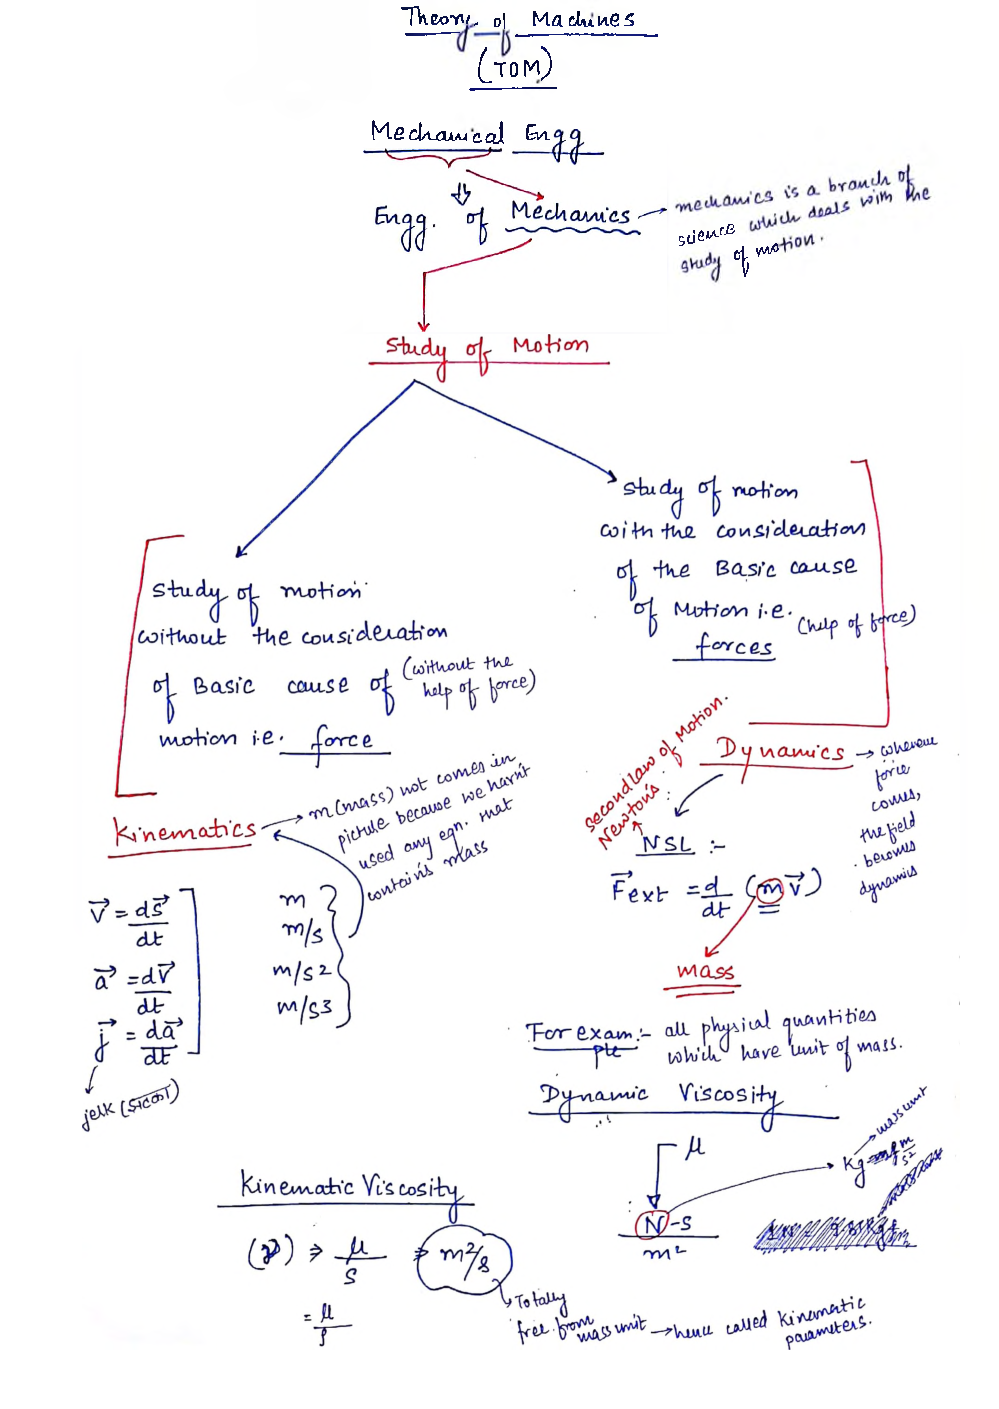 Theory of Machines
(TOM)
Mechanical Engg
Engg. of Mechanics
mechanics is a branch of
science which deals with the
study of motion.
Study of Motion
study of motion
with the consideration
of the Basic cause
of Motion i.e. (help of force)
forces
study of motion
without the consideration
of Basic cause of (without the
help of force)
motion i.e. force
Second law of Motion.
Newton's
Dynamics
wherever
force
comes,
the field
becomes
dynamics
Kinematics
m (mass) not comes in
picture because we harn't
used any eqn. that
contains mass
NSL :-
F⃗ext = d/dt (m v⃗)
mass
V⃗ = ds⃗/dt
a⃗ = dV⃗/dt
j⃗ = da⃗/dt
m
m/s
m/s2
m/s3
jerk (झटका)
For exam :- all physical quantities
ple which have unit of mass.
Dynamic Viscosity
μ
N-s
m²
Kg m/s²
mass unit
Kinematic Viscosity
(ν) ⇒ μ/S ⇒ m²/s
= μ/ρ
Totally
free from
mass unit → hence called Kinematic
parameters.